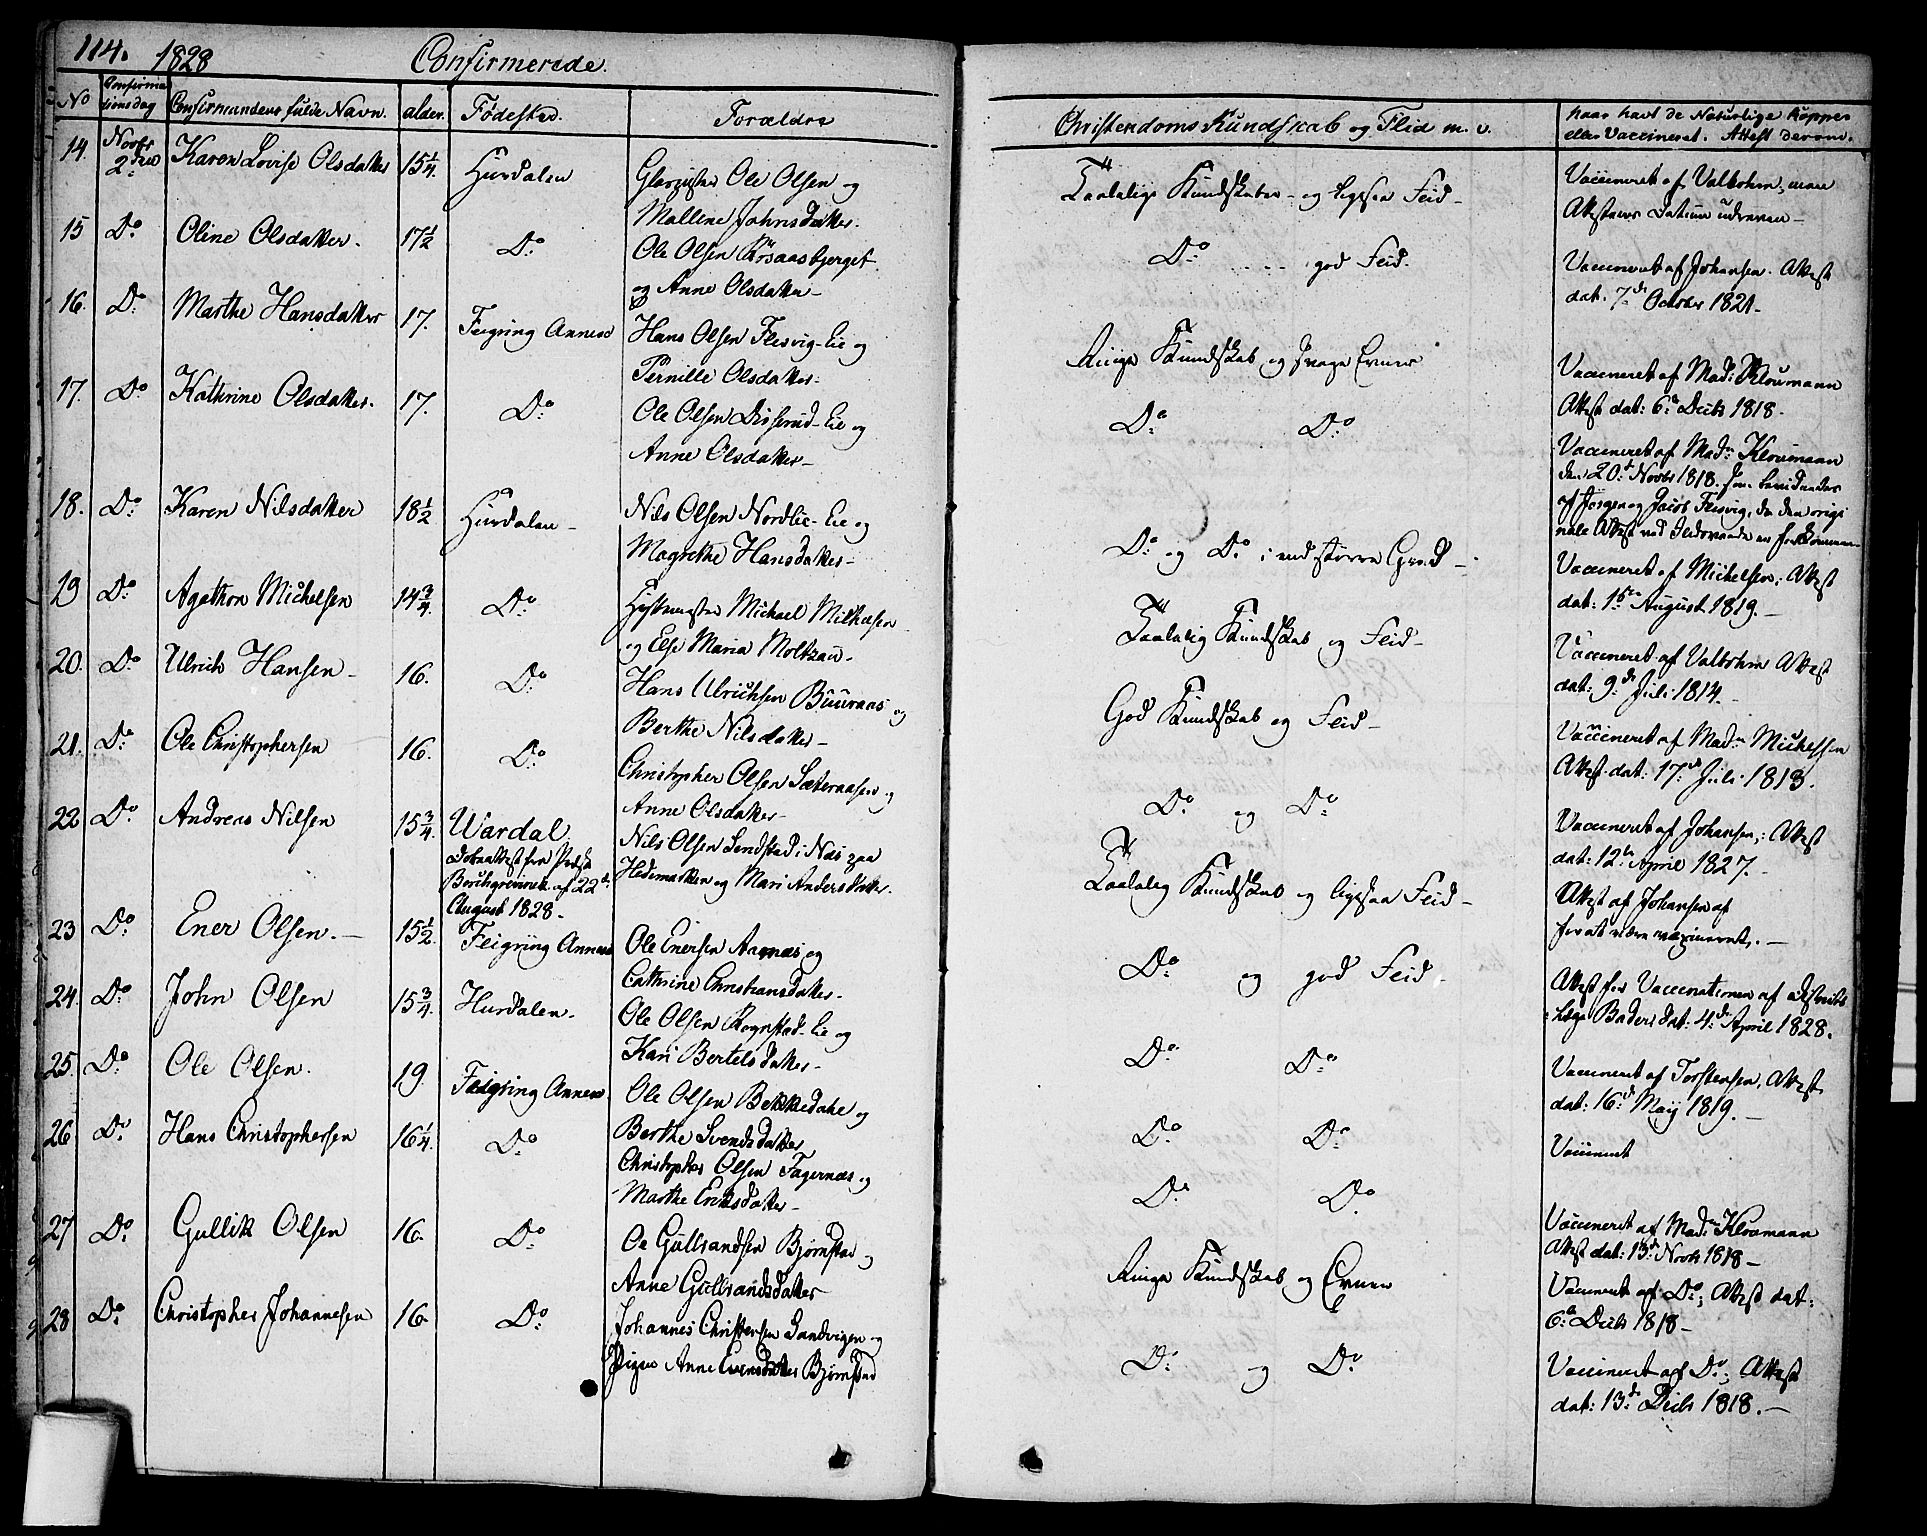 114. 1828 Confirmerede.
No Confirmationsdag Confirmandens fulde Navn. alder. Fødested. Forældre Christendoms Kundskab og Flid m. v. naar havt de Naturlige Kopper
eller Vaccineret. Attest derom.
14. Novbr 2den Karen Lovise Olsdatter 15 1/4 Hurdalen Glarpuster Ole Olsen og
Mallene Johnsdatter.
Taalelige Kundskaber og ligesaa Flid -
Vaccineret af Valbohm, men
Attestens Datum udreven -
15 Do Oline Olsdatter. 17 1/2 Do Ole Olsen Rørsaasbjerget
og Anne Olsdatter -
Do .... god Flid.
Vaccineret af Johansen. Attest
dat. 7de October 1821 -
16. Do Marthe Hansdatter 17. Feigring Annexe Hans Olsen Flesvig-Eie og
Pernille Olsdatter -
Ringe Kundskab og svage Evner
Vaccineret af Mad: Kloumann
Attest dat: 6te Decbr 1818.
17. Do Kathrine Olsdatter. 17. Do Ole Olsen Disserud-Eie og
Anne Olsdatter -
Do Do
Vaccineret af Madm Kloumann
den 20de Novbr 1818. som bevidnedes
af Jørgen og Jacob Flesvig, da den origi
nale Attest ved Ildsvaade er forkommen -
18. Do Karen Nilsdatter 18 1/2 Hurdalen - Nils Olsen Nordlie-Eie og
Magrethe Hansdatter -
Do og Do i end større Grad -
Vaccineret af Michelsen; Attest
dat: 15de August 1819. -
19 Do Agathon Michelsen 14 3/4. Do Hyttemester Michael Michelsen
og Else Maria Moltzau -
Taalelig Kundskab og Flid -
Vaccineret af Valbohm Attest
dat: 9de Juli 1814. -
20. Do Ulrich Hansen - 16. Do Hans Ulrichsen Buuraas og
Berthe Nilsdatter -
God Kundskab og Flid -
Vaccineret af Madm Michelsen
Attest dat: 17de Juli 1813.
21. Do Ole Christophersen 16. Do Christopher Olsen Sæteraasen og
Anne Olsdatter -
Do og Do
Vaccineret af Johansen; Attest
dat: 12te April 1827. -
22 Do Andreas Nilsen 15 3/4. Wardal.
Døbeattest fra Prdst
Borchgrevinck af 22de
August 1828 -
Nils Olsen Sendstad i Næs paa
Hedemarken og Mari Andersdatter.
Taalelig Kundskab og ligesaa Flid -
Attest af Johansen af
for at være vaccineret. -
23 Do Ener Olsen. - 15 1/2. Feigring Annexe Ole Enersen Aarnæs og
Cathrine Christiansdatter -
Do og god Flid -
Attest for Vaccinationen af Districts
Læge Bader, dat: 4de April 1828.
24. Do John Olsen 15 3/4. Hurdalen - Ole Olsen Rognstad-Eie og
Kari Bertelsdatter -
Do Do
Vaccineret af Torstensen, Attest
dat: 16de Maij 1819. -
25. Do Ole Olsen. 19. Feigring Annexe Ole Olsen Bekkedahl og
Berthe Svendsdatter
Do Do
Vaccineret
26 Do Hans Christophersen 16 1/4. Do Christopher Olsen Fagernæs og
Marthe Ericksdatter -
Do Do
Vaccineret af Madm Kloumann
Attest dat: 13de Novbr 1818 -
27 Do Gullik Olsen 16. Do Ole Gulbrandsen Bjørnstad og
Anne Gulbrandsdatter
Ringe Kundskab og Evner
Vaccineret af Do; Attest dat:
6te Decbr 1818 -
28 Do Christopher Johannesen 16. Do Johannes Christensen Sandvigen og
Pigen Anne Evensdatter Bjørnstad
Do og Do
Vaccineret af Do; Attest
dat: 13de Decbr 1818. -